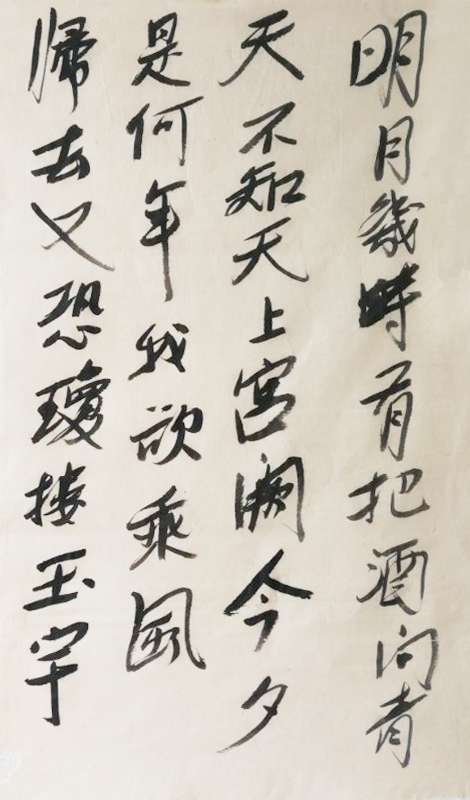 明月幾時有把酒问青
天不知天上宫阙今夕
是何年我欲乘風
歸去又恐瓊楼玉宇